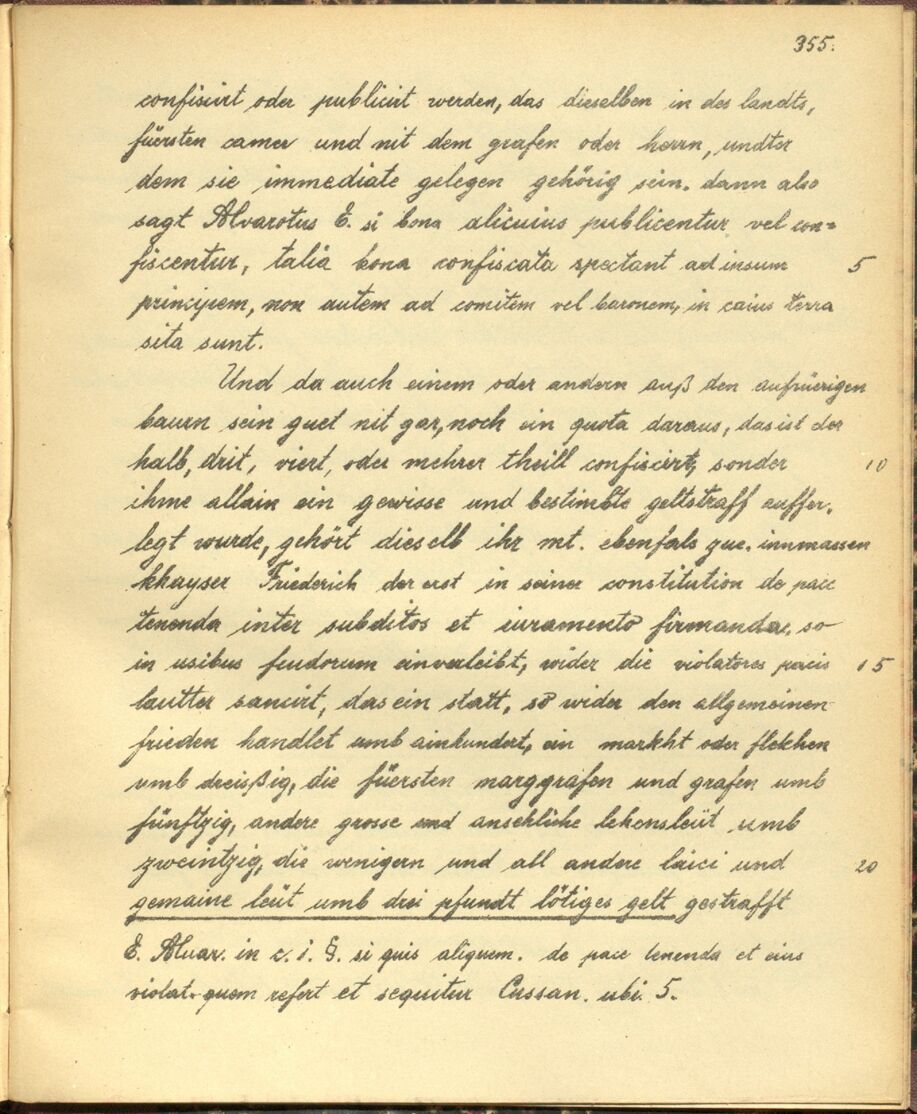 355.
confiscirt oder publicirt werden, das dieselben in des landts,
füersten camer und nit dem grafen oder herrn, undter
dem sie immediate gelegen gehörig sein. dann also
sagt Alvarotus E. si bona alicuius publicentur vel con=
fiscentur, talia bona confiscata spectant ad insum 5
principem, non autem ad comitem vel baronem, in cuius terra
sita sunt.
Und da auch einem oder andern auß den aufrüerigen
baurn sein guet nit gar, noch ein quota daraus, das ist der
halb, drit, viert, oder mehrer theill confiscirt, sonder 10
ihme allain ein gewisse und bestimbte geltstraff auffer,
legt wurde, gehört dieselb ihr mt. ebenfals zue. innmassen
khayser Friederich der erst in seiner constitution de pace
tenenda inter subditos et iuramento firmanda, so
in usibus feudorum einverleibt, wider die violatores pacis 15
lautter sancirt, das ein statt, so wider den allgemeinen
frieden handlet umb ainhundert, ein markht oder flekhen
umb dreisßig, die füersten marggrafen und grafen umb
fünftzig, andere grosse und ansehliche lehensleüt umb
zweintzig, die wenigern und all andere laici und 20
gemaine leüt umb drei pfundt lötiges gelt gestrafft
E. Alvar. in c. i. §. si quis aliquem. de pace tenenda et eius
violat. quem refert et sequitur Cassan. ubi. 5.